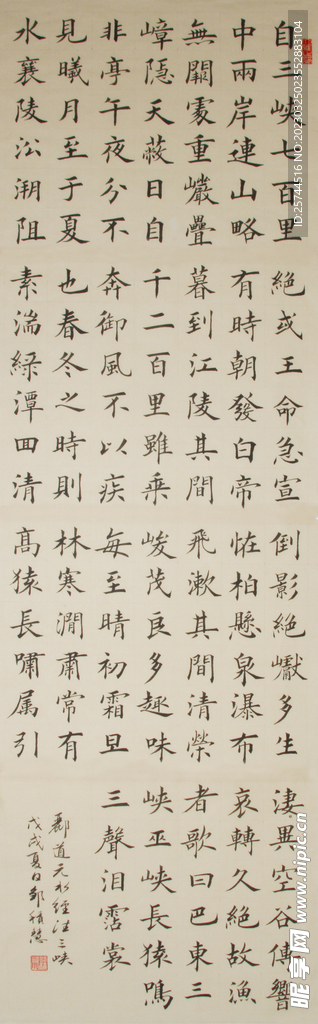 自三峽七百里
中兩岸連山略
無闕處重巖疊
嶂隱天蔽日自
非亭午夜分不
見曦月至于夏
水襄陵沿溯阻
絕或王命急宣
有時朝發白帝
暮到江陵其間
千二百里雖乘
奔御風不以疾
也春冬之時則
素湍緑潭囬清
倒影絕巘多生
恠柏懸泉瀑布
飛漱其間清榮
峻茂良多趣味
每至晴初霜旦
林寒澗肅常有
高猿長嘯属引
淒異空谷傳響
哀轉久絕故漁
者歌曰巴東三
峽巫峽長猿鳴
三聲泪霑裳
酈道元水經注三峽
戊戌夏日
ID:25744516 NO:20230325023552883104
昵享网 www.nipic.cn